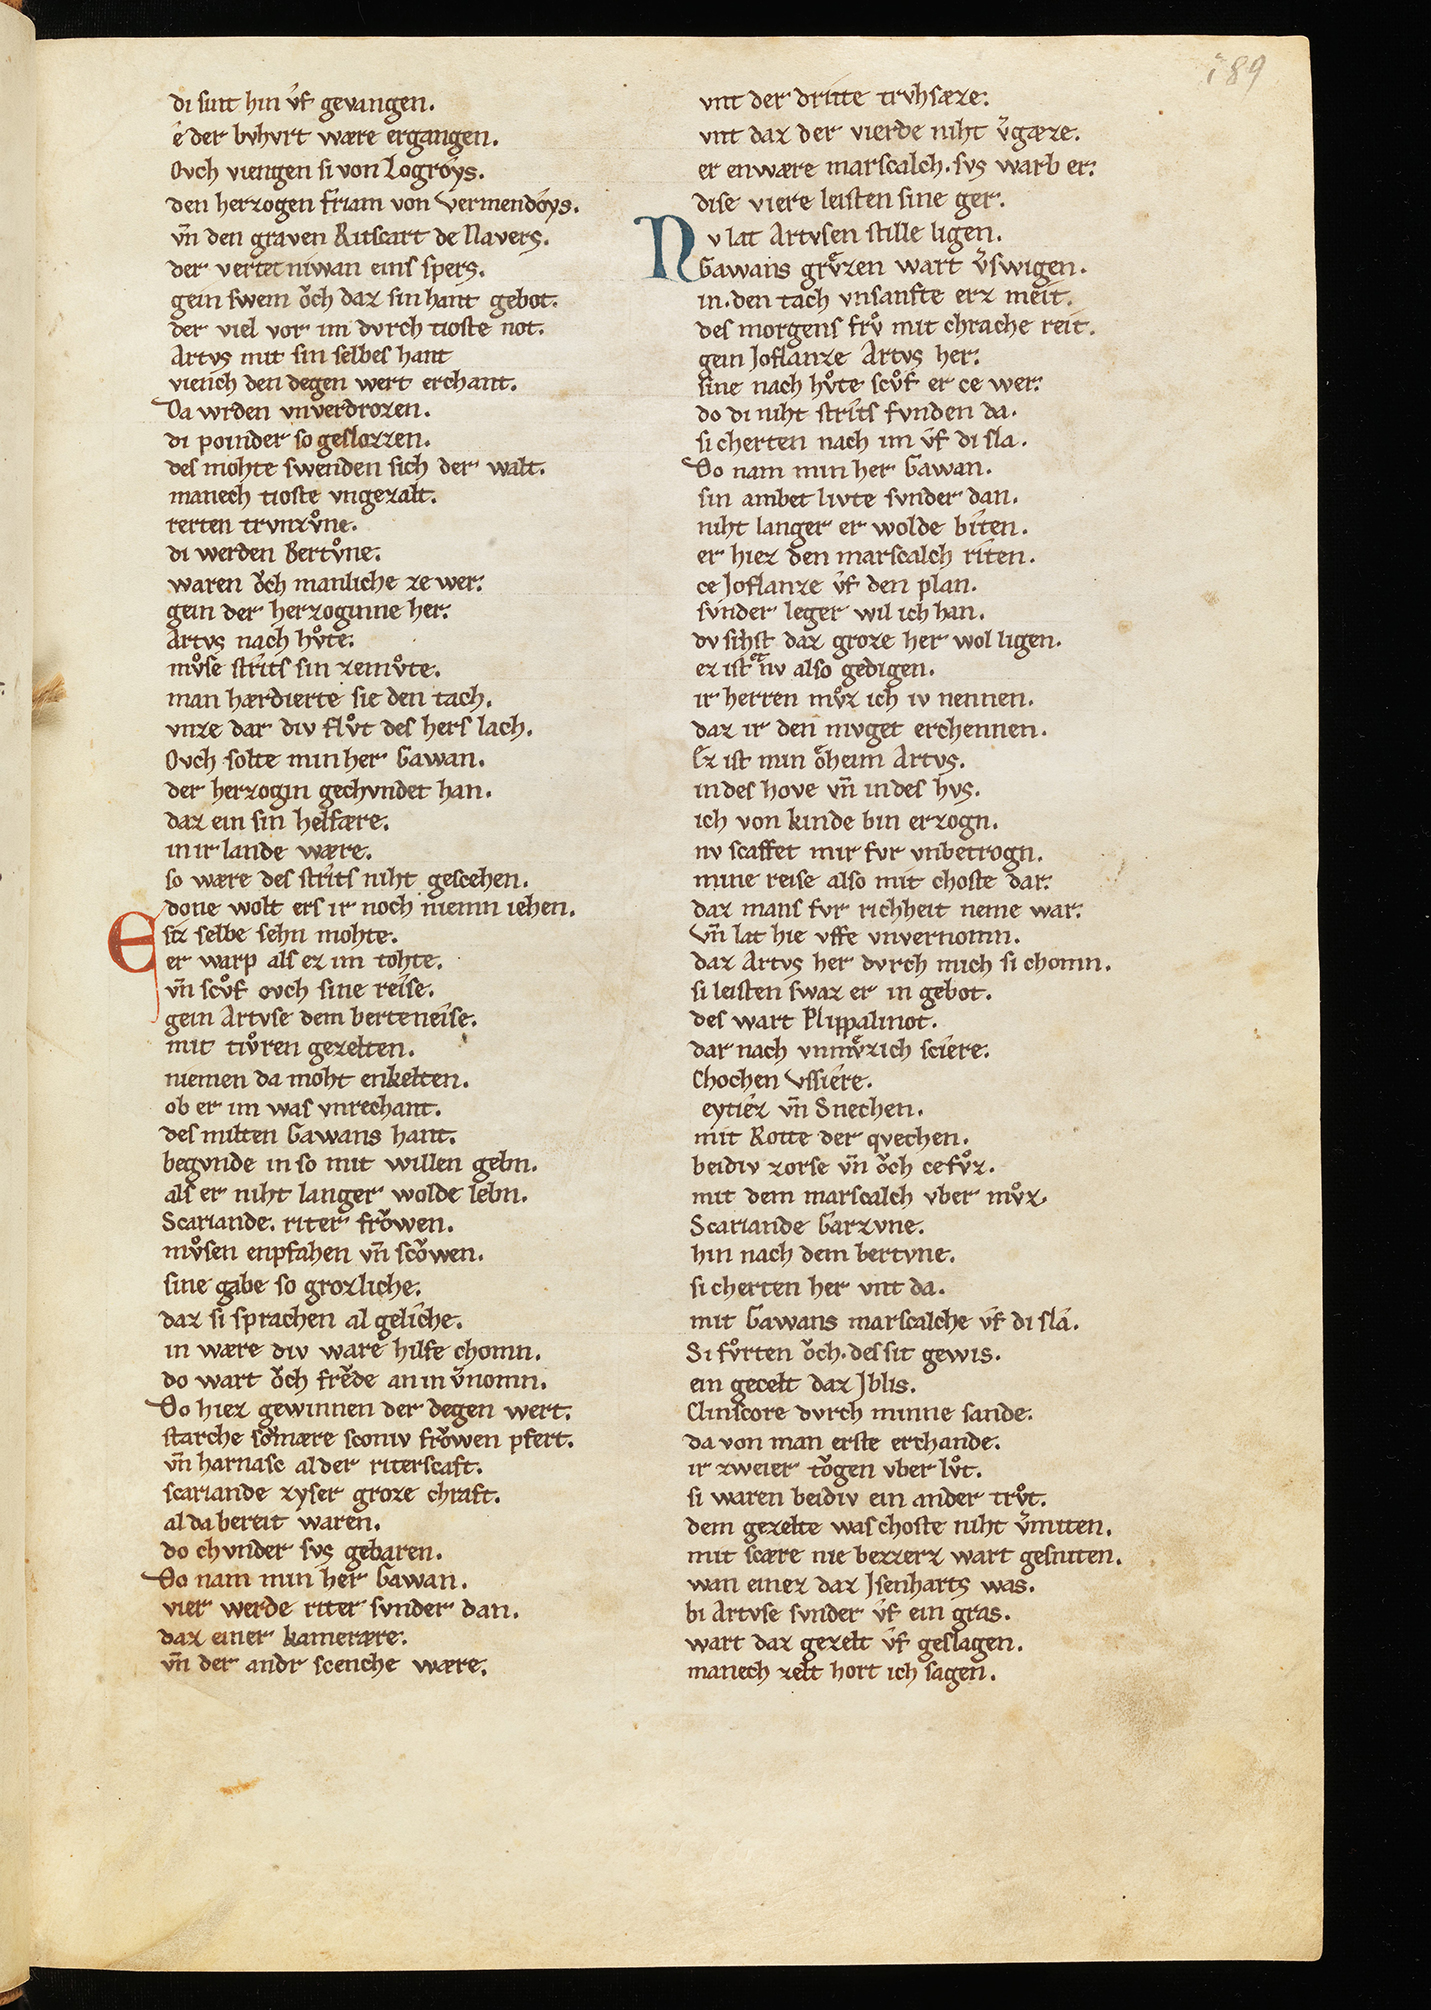 189
di sint hin v̂f gevangen.
ê der bvhvrt wære ergangen.
Ovch viengen si von Logroẏs.
den herzogen friam von vermendoẏs.
vn̄ den graven Ritscart de Navers.
der vertet niwan eins spers.
gein swem oͮch daz sin hant gebot.
der viel vor im dvrch tioste not.
Artvs mit sin selbes hant
viench den degen wert erchant.
Da wrden vnverdrozen.
di poinder so geslozzen.
des mohte swenden sich der walt.
manech tioste vngezalt.
rerten trvnzvͦne.
di werden Bertvͦne.
waren oͮch manliche ze wer.
gein der herzoginne her.
Artvs nach hvͦte.
mvͦse strits sin zemvͦte.
man hærdierte sie den tach.
vnze dar div flvͦt des hers lach.
Ovch solte min her Gawan.
der herzogin gechvndet han.
daz ein sin helfære.
in ir lande wære.
so wære des strits niht gescehen.
done wolt ers ir noch niemn iehen.
E siz selbe sehn mohte.
er warp als ez im tohte.
vn̄ scvͦf ovch sine reise.
gein Artvse dem berteneise.
mit tivͦren gezelten.
niemen da moht enkelten.
ob er im was vnrechant.
des milten Gawans hant.
begvnde in so mit willen gebn.
als er niht langer wolde lebn.
Scariande. riter froͮwen.
mvͦsen enpfahen vn̄ scoͮwen.
sine gabe so grozliche.
daz si sprachen al geliche.
in wære div ware hilfe chomn.
do wart oͮch freͮde an in v̄nomn.
Do hiez gewinnen der degen wert.
starche soͮmære sconiv froͮwen pfert.
vn̄ harnasc al der riterscaft.
scariande zyser groze chraft.
al da bereit waren.
do chvnder svs gebaren.
Do nam min her Gawan.
vier werde riter svnder dan.
daz einer kamerære.
vn̄ der andr scenche wære.
vnt der dritte trvhsæze.
vnt daz der vierde niht v̄gæze.
er enwære marscalch. svs warb er.
dise viere leisten sine ger.
Nv lat Artvsen stille ligen.
Gawans grvͤzen wart v̄swigen.
in. den tach vnsanfte erz meit.
des morgens frvͦ mit chrache reit.
gein Joflanze Artvs her.
sine nach hvͦte scvͦf er ce wer.
do di niht strits fvnden da.
si cherten nach im v̂f di sla.
Do nam min her Gawan.
sin ambet livte svnder dan.
niht langer er wolde biten.
er hiez den marscalch riten.
ce Joflanze v̂f den plan.
svnder leger wil ich han.
dv sihst daz groze her wol ligen.
ez ist et nv also gedigen.
ir herren mvͦz ich iv nennen.
daz ir den mvget erchennen.
Ez ist min oͤheim Artvs.
in des hove vn̄ in des hvs.
ich von kinde bin erzogn.
nv scaffet mir fvr vnbetrogn.
mine reise also mit choste dar.
daz mans fvr richheit neme war.
vn̄ lat hie vffe vnvernomn.
daz Artvs her dvrch mich si chomn.
si leisten swaz er in gebot.
des wart Plippalinot.
dar nach vnmvͤzich sciere.
Chochen vssiere.
eytiez vn̄ Snechen.
mit Rotte der qvechen.
beidiv zorse vn̄ oͮch cefvͦz.
mit dem marscalch vber mvͦz.
Scariande Garzvne.
hin nach dem bertvne.
si cherten her vnt da.
mit Gawans marscalche v̂f di sla.
Si fvͦrten oͮch. des sit gewis.
ein gecelt daz Jblis.
Clinscore dvrch minne sande.
da von man erste erchande.
ir zweier toͮgen vber lvͦt.
si waren beidiv ein ander trvͦt.
dem gezelte was choste niht v̄miten.
mit scære nie bezzerz wart gesniten.
wan einez daz Jsenharts was.
bi Artvse svnder v̂f ein gras.
wart daz gezelt v̂f geslagen.
manech zelt hort ich sagen.